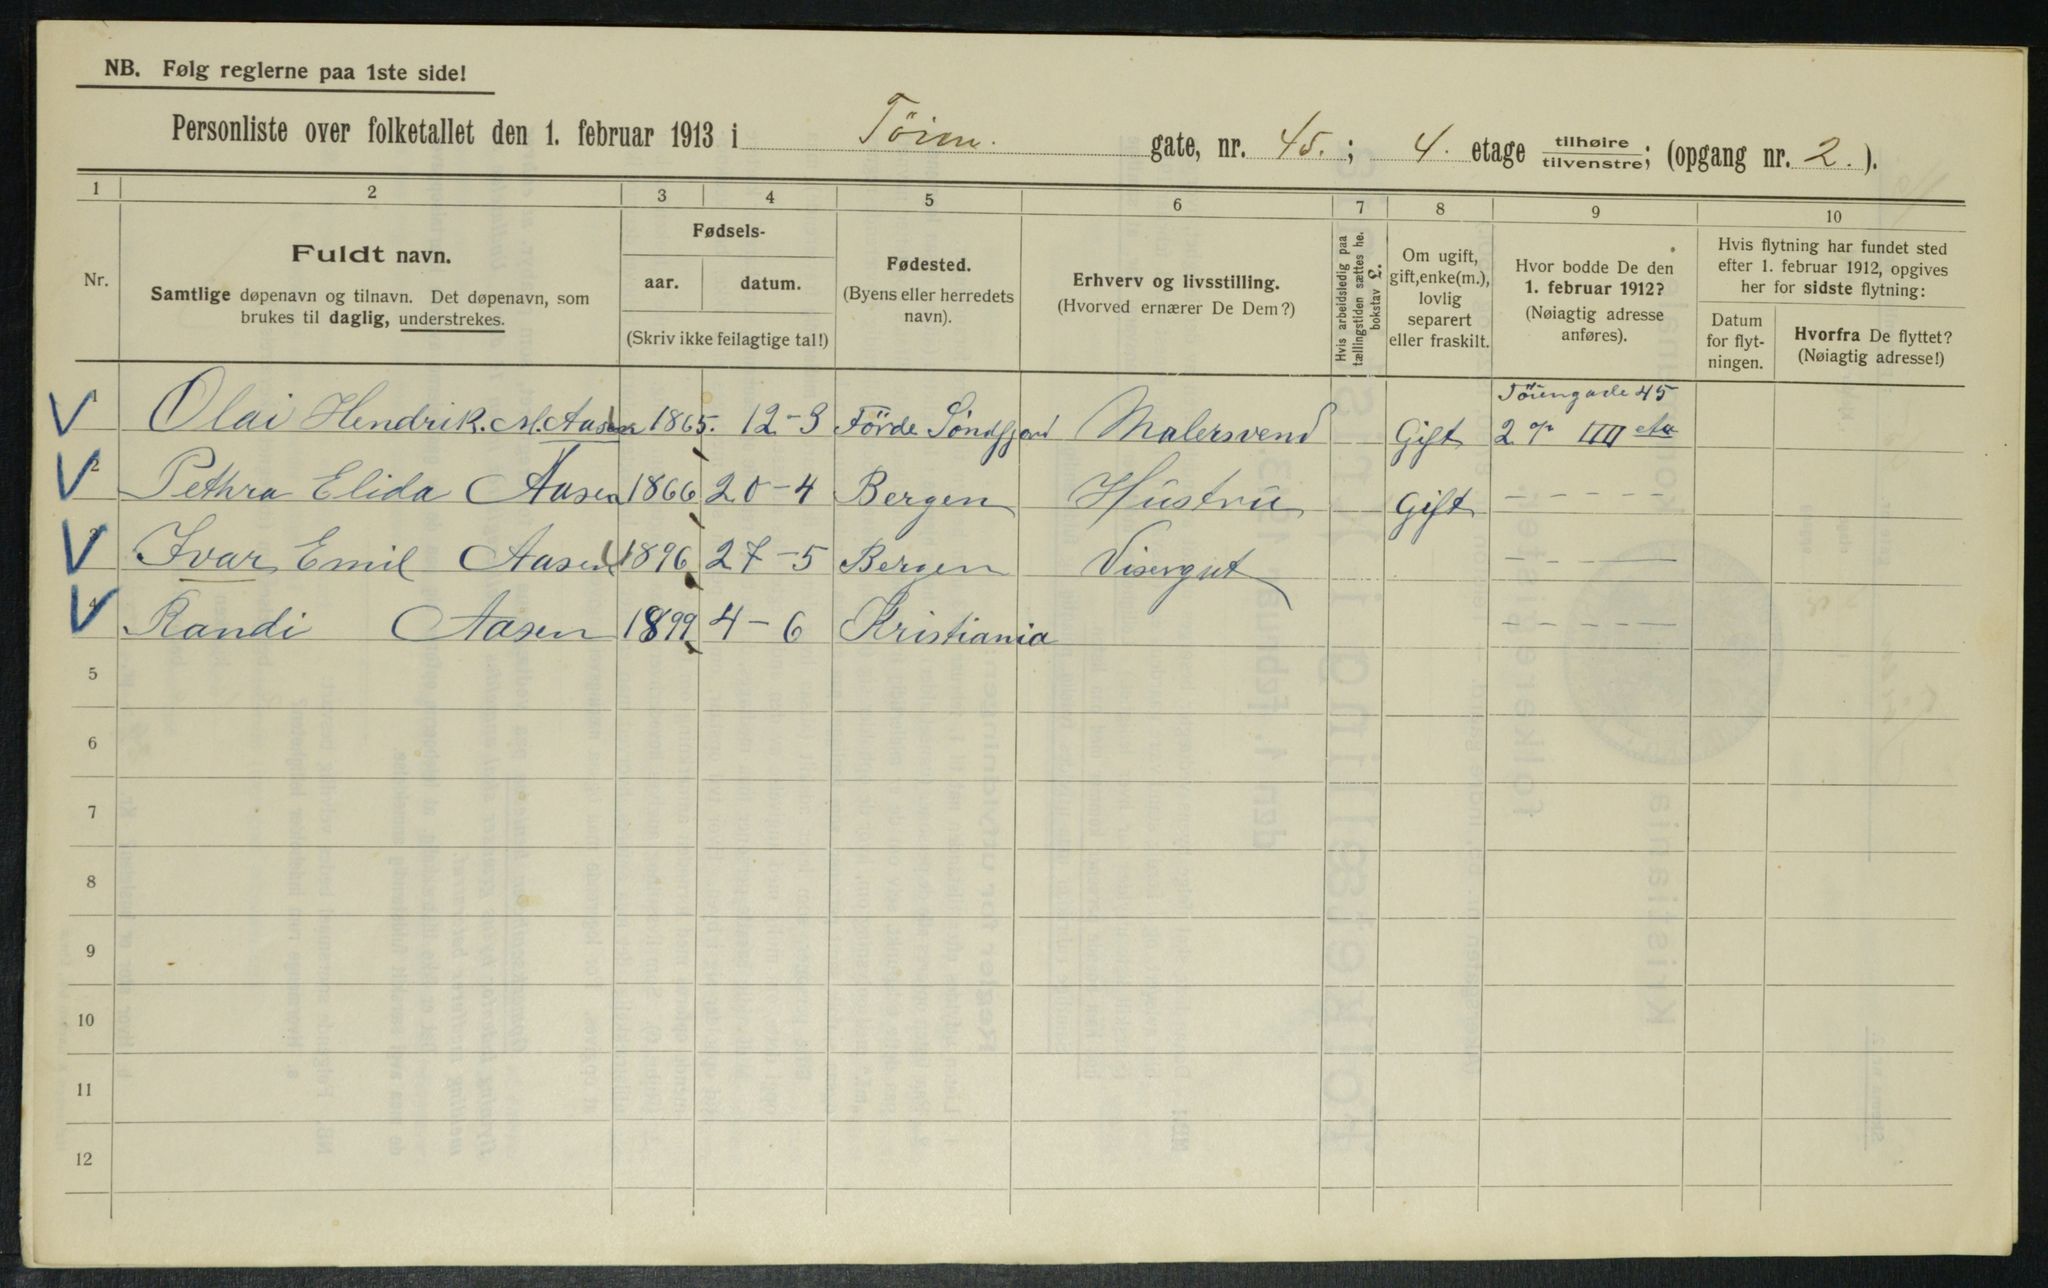 NB. Følg reglerne paa 1ste side!
Personliste over folketallet den 1. februar 1913 i Töien. gate, nr. 45. ; 4. etage tilhøire tilvenstre; (opgang nr. 2. ).
1 2 3 4 5 6 7 8 9 10
Nr.
Fuldt navn.
Samtlige døpenavn og tilnavn. Det døpenavn, som
brukes til daglig, understrekes.
Fødsels-
aar. datum.
(Skriv ikke feilagtige tal!)
Fødested.
(Byens eller herredets
navn).
Erhverv og livsstilling.
(Hvorved ernærer De Dem?)
Hvis arbeidsledig paa
tællingstiden sættes her
bokstav L.
Om ugift,
gift,enke(m.),
lovlig
separert
eller fraskilt.
Hvor bodde De den
1. februar 1912?
(Nøiagtig adresse
anføres).
Hvis flytning har fundet sted
efter 1. februar 1912, opgives
her for sidste flytning:
Datum
for flyt-
ningen.
Hvorfra De flyttet?
(Nøiagtig adresse!)
Töiengade 45
1 Olai Hendrik. M. Aasen 1865. 12-3 Förde Söndfjord Malersvend Gift 2 op IIII eta
2 Pethra Elida Aasen 1866 20-4 Bergen Hustru Gift - - - - -
3 Ivar Emil Aasen 1896 27-5 Bergen Visergut - - - -
4 Randi Aasen 1899 4-6 Kristiania - - - - -
5
6
7
8
9
10
11
12